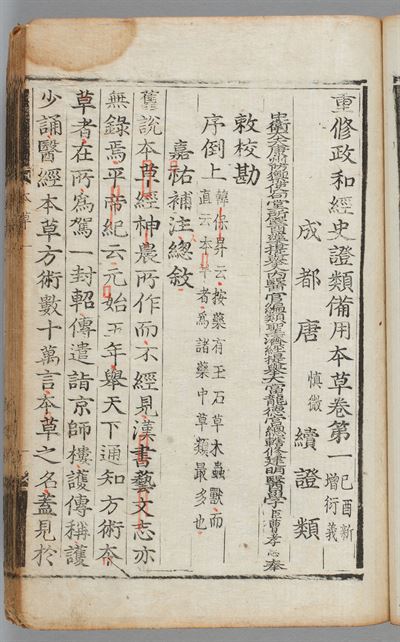 重修政和經史證類備用本草卷第一 己酉新增衍義
成都唐慎微續證類
醫官編類聖濟經提舉 醫學臣曹孝忠奉
敕校勘
序例上 韓保昇云按藥有玉石草木蟲獸而
直云本草者爲諸藥中草類最多也
嘉祐補注總敘
舊說本草經神農所作而不經見漢書藝文志亦
無錄焉平帝紀云元始五年舉天下通知方術本
草者在所爲駕一封軺傳遣詣京師樓護傳稱護
少誦醫經本草方術數十萬言本草之名蓋見於